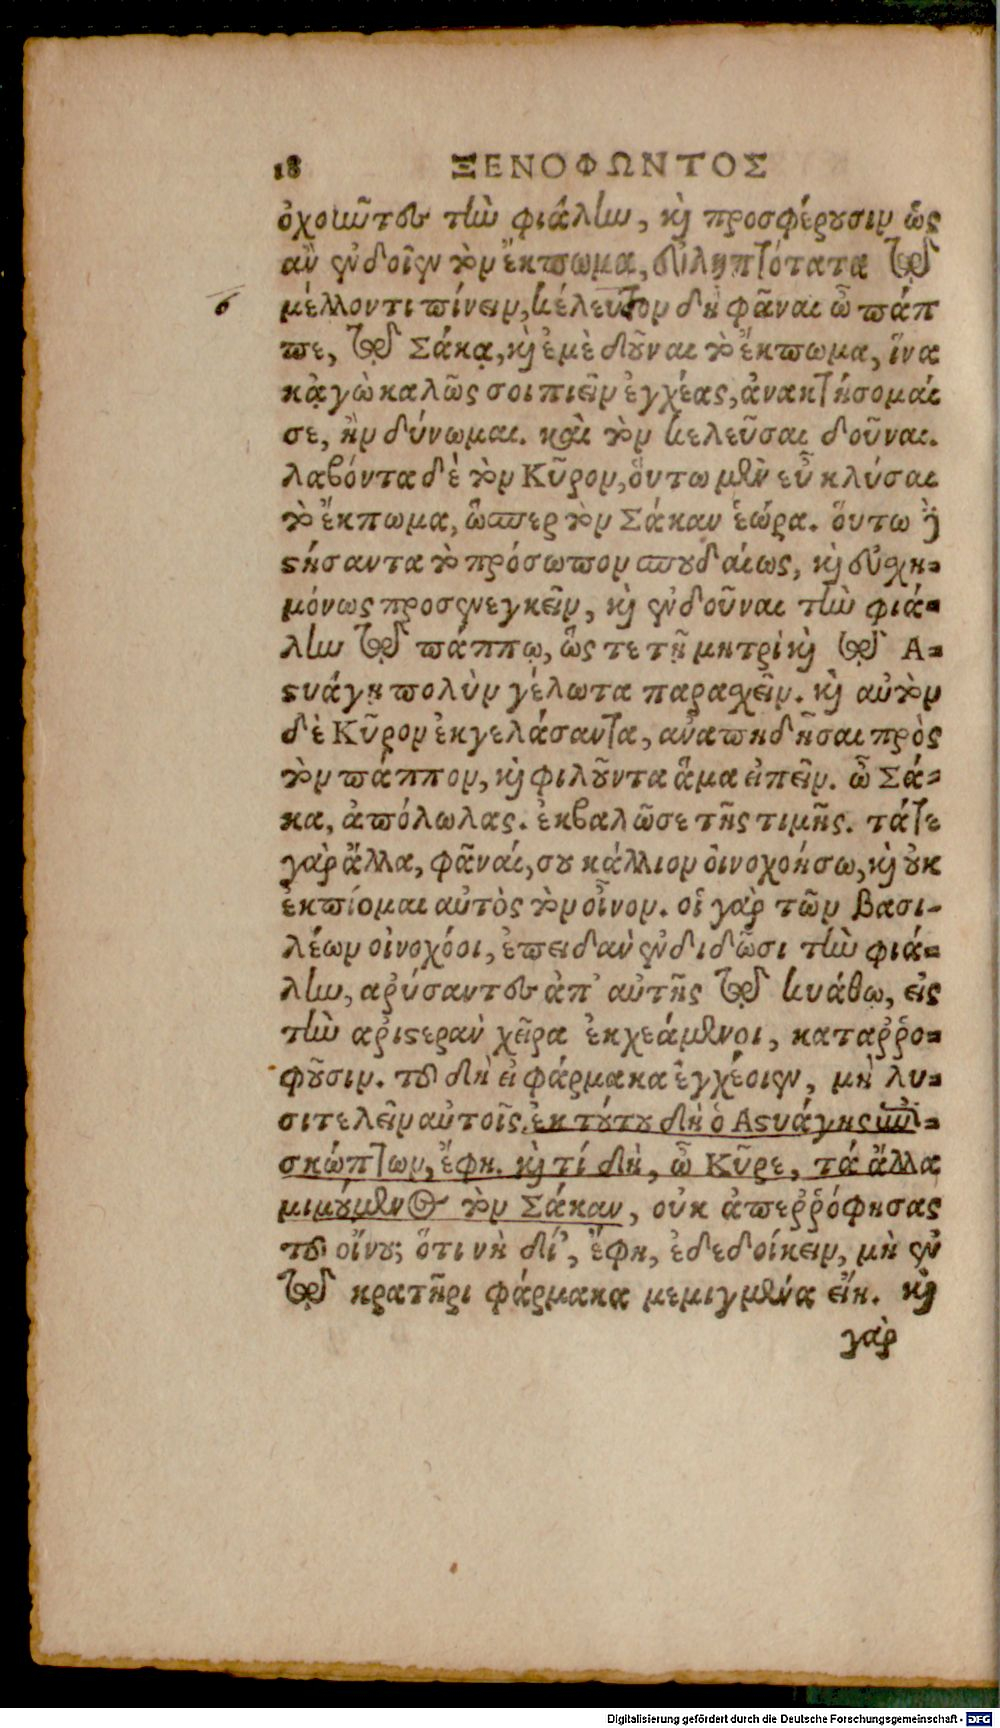 18 ΞΕΝΟΦΩΝΤΟΣ
ὀχοιῶτες τὴν φιάλην, καὶ προσφέρουσιν ὡς
ἂν ἐνδοῖεν τὸν ἔκπωμα, εὐληπτότατα τῷ
6 μέλλοντι πίνειν, κέλευσον δὴ φᾶναι ὦ πάπ
πε, τῷ Σάκᾳ, καὶ ἐμὲ δοῦναι τὸ ἔκπωμα, ἵνα
κᾀγὼ καλῶς σοι πιεῖν ἐγχέας, ἀνακτήσομαί
σε, ἢν δύνωμαι. καὶ τὸν κελεῦσαι δοῦναι.
λαβόντα δὲ τὸν Κῦρον, ὅυτω μὲν εὖ κλύσαι
τὸ ἔκπωμα, ὥσπερ τὸν Σάκαν ἑώρα. ὅυτω δὲ
στήσαντα τὸ πρόσωπον σπουδαίως, καὶ εὐσχη-
μόνως προσενεγκεῖν, καὶ ἐνδοῦναι τὴν φιά-
λην τῷ πάππῳ, ὥς τε τῇ μητρὶ καὶ τῷ Α-
στυάγῃ πολὺν γέλωτα παρασχεῖν. καὶ αὐτὸν
δὲ Κῦρον ἐκγελάσαντα, ἀναπηδῆσαι πρὸς
τὸν πάππον, καὶ φιλοῦντα ἅμα εἰπεῖν. ὦ Σά-
κα, ἀπόλωλας. ἐκβαλῶ σε τῆς τιμῆς. τά τε
γὰρ ἄλλα, φᾶναί, σου κάλλιον ὀινοχοήσω, καὶ οὐκ
ἐκπίομαι αὐτὸς τὸν οἶνον. οἱ γὰρ τῶν βασι-
λέων οἰνοχόοι, ἐπειδὰν ἐνδιδῶσι τὴν φιά-
λην, ἀρύσαντες ἀπ' αὐτῆς τῷ κυάθῳ, εἰς
τὴν ἀριστερὰν χεῖρα ἐκχεάμενοι, καταῤῥο-
φοῦσιν. τοῦ δὴ εἰ φάρμακα ἐγχέοιεν, μὴ λυ-
σιτελεῖν αὐτοῖς. ἐκ τούτου δὴ ὁ Ἀστυάγης ἐπι-
σκώπτων, ἔφη. καὶ τί δὴ, ὦ Κῦρε, τά ἄλλα
μιμούμενος τὸν Σάκαν, οὐκ ἀπεῤῥόφησας
τοῦ οἴνου; ὅτι νὴ δί', ἔφη, ἐδεδοίκειν, μὴ ἐν
τῷ κρατῆρι φάρμακα μεμιγμένα εἴη. καὶ
γὰρ
Digitalisierung gefördert durch die Deutsche Forschungsgemeinschaft - DFG